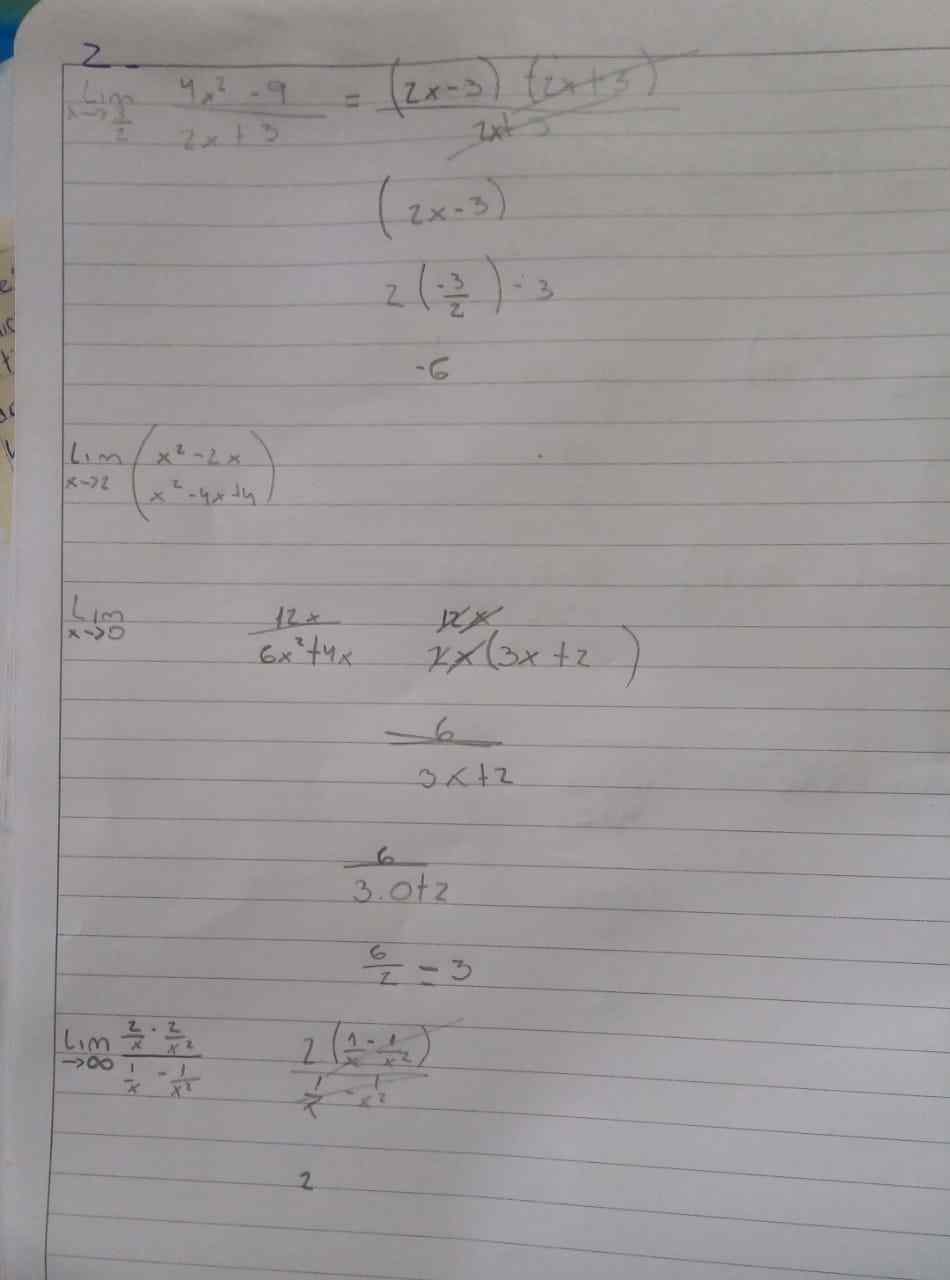 2.
Lim x→-3/2 (4x² - 9)/(2x + 3) = (2x-3) (2x+3)/(2x+3)
(2x-3)
2(-3/2) - 3
-6
Lim x→2 (x² - 2x / x² - 4x + 4)
Lim x→0 12x/(6x² + 4x) 12x/2x(3x + 2)
6/(3x + 2)
6/(3.0 + 2)
6/2 = 3
Lim →∞ (2/x - 2/x²)/(1/x - 1/x²) 2(1/x - 1/x²)/(1/x - 1/x²)
2